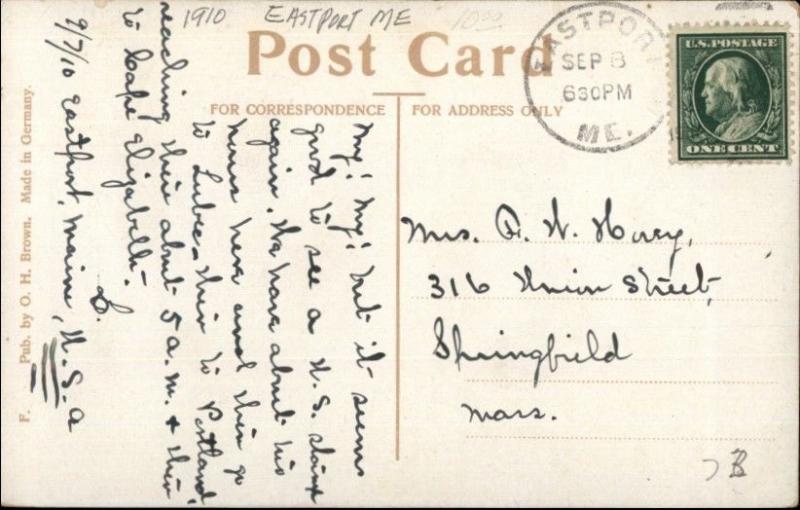 1910 EASTPORT ME 10.00
Post Card
FOR CORRESPONDENCE
FOR ADDRESS ONLY
EASTPORT
SEP 8
630PM
ME.
U.S. POSTAGE
ONE CENT
My! My! but it seems
good to see a U.S. stamp
again. We have about two
hours here and then go
to Lubec - then to Portland,
reaching there about 5 a.m. & then
to Cape Elizabeth.
9/7/10 Eastport, Maine, U.S.A
Mrs. H. Hovey,
316 Union Street,
Springfield
Mass.
F. Pub. by O. H. Brown. Made in Germany.